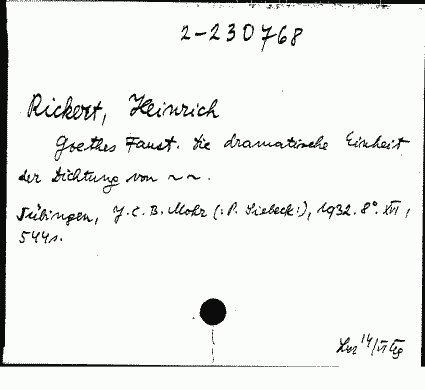 2-230768
Rickert, Heinrich
Goethes Faust. Die dramatische Einheit
der Dichtung von ~ ~.
Tübingen, J. C. B. Mohr (:P. Siebeck:), 1932. 8°. XVI,
544 s.
14/VI